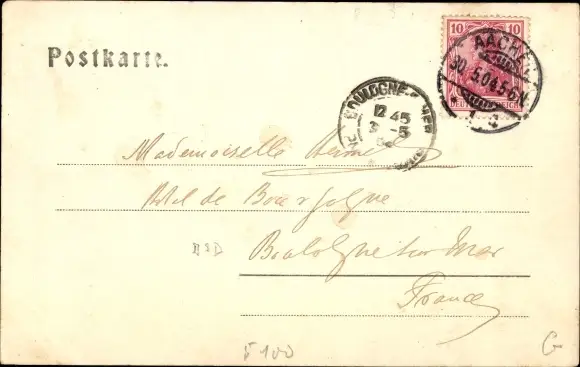 Postkarte.
10 10
AACHEN
30.5.04.5-6N.
1
BOULOGNE-S-MER
12 45
3 -5
04
Mademoiselle
Hotel de Bourgogne
Boulogne sur Mer
France
BSD
F 100
G